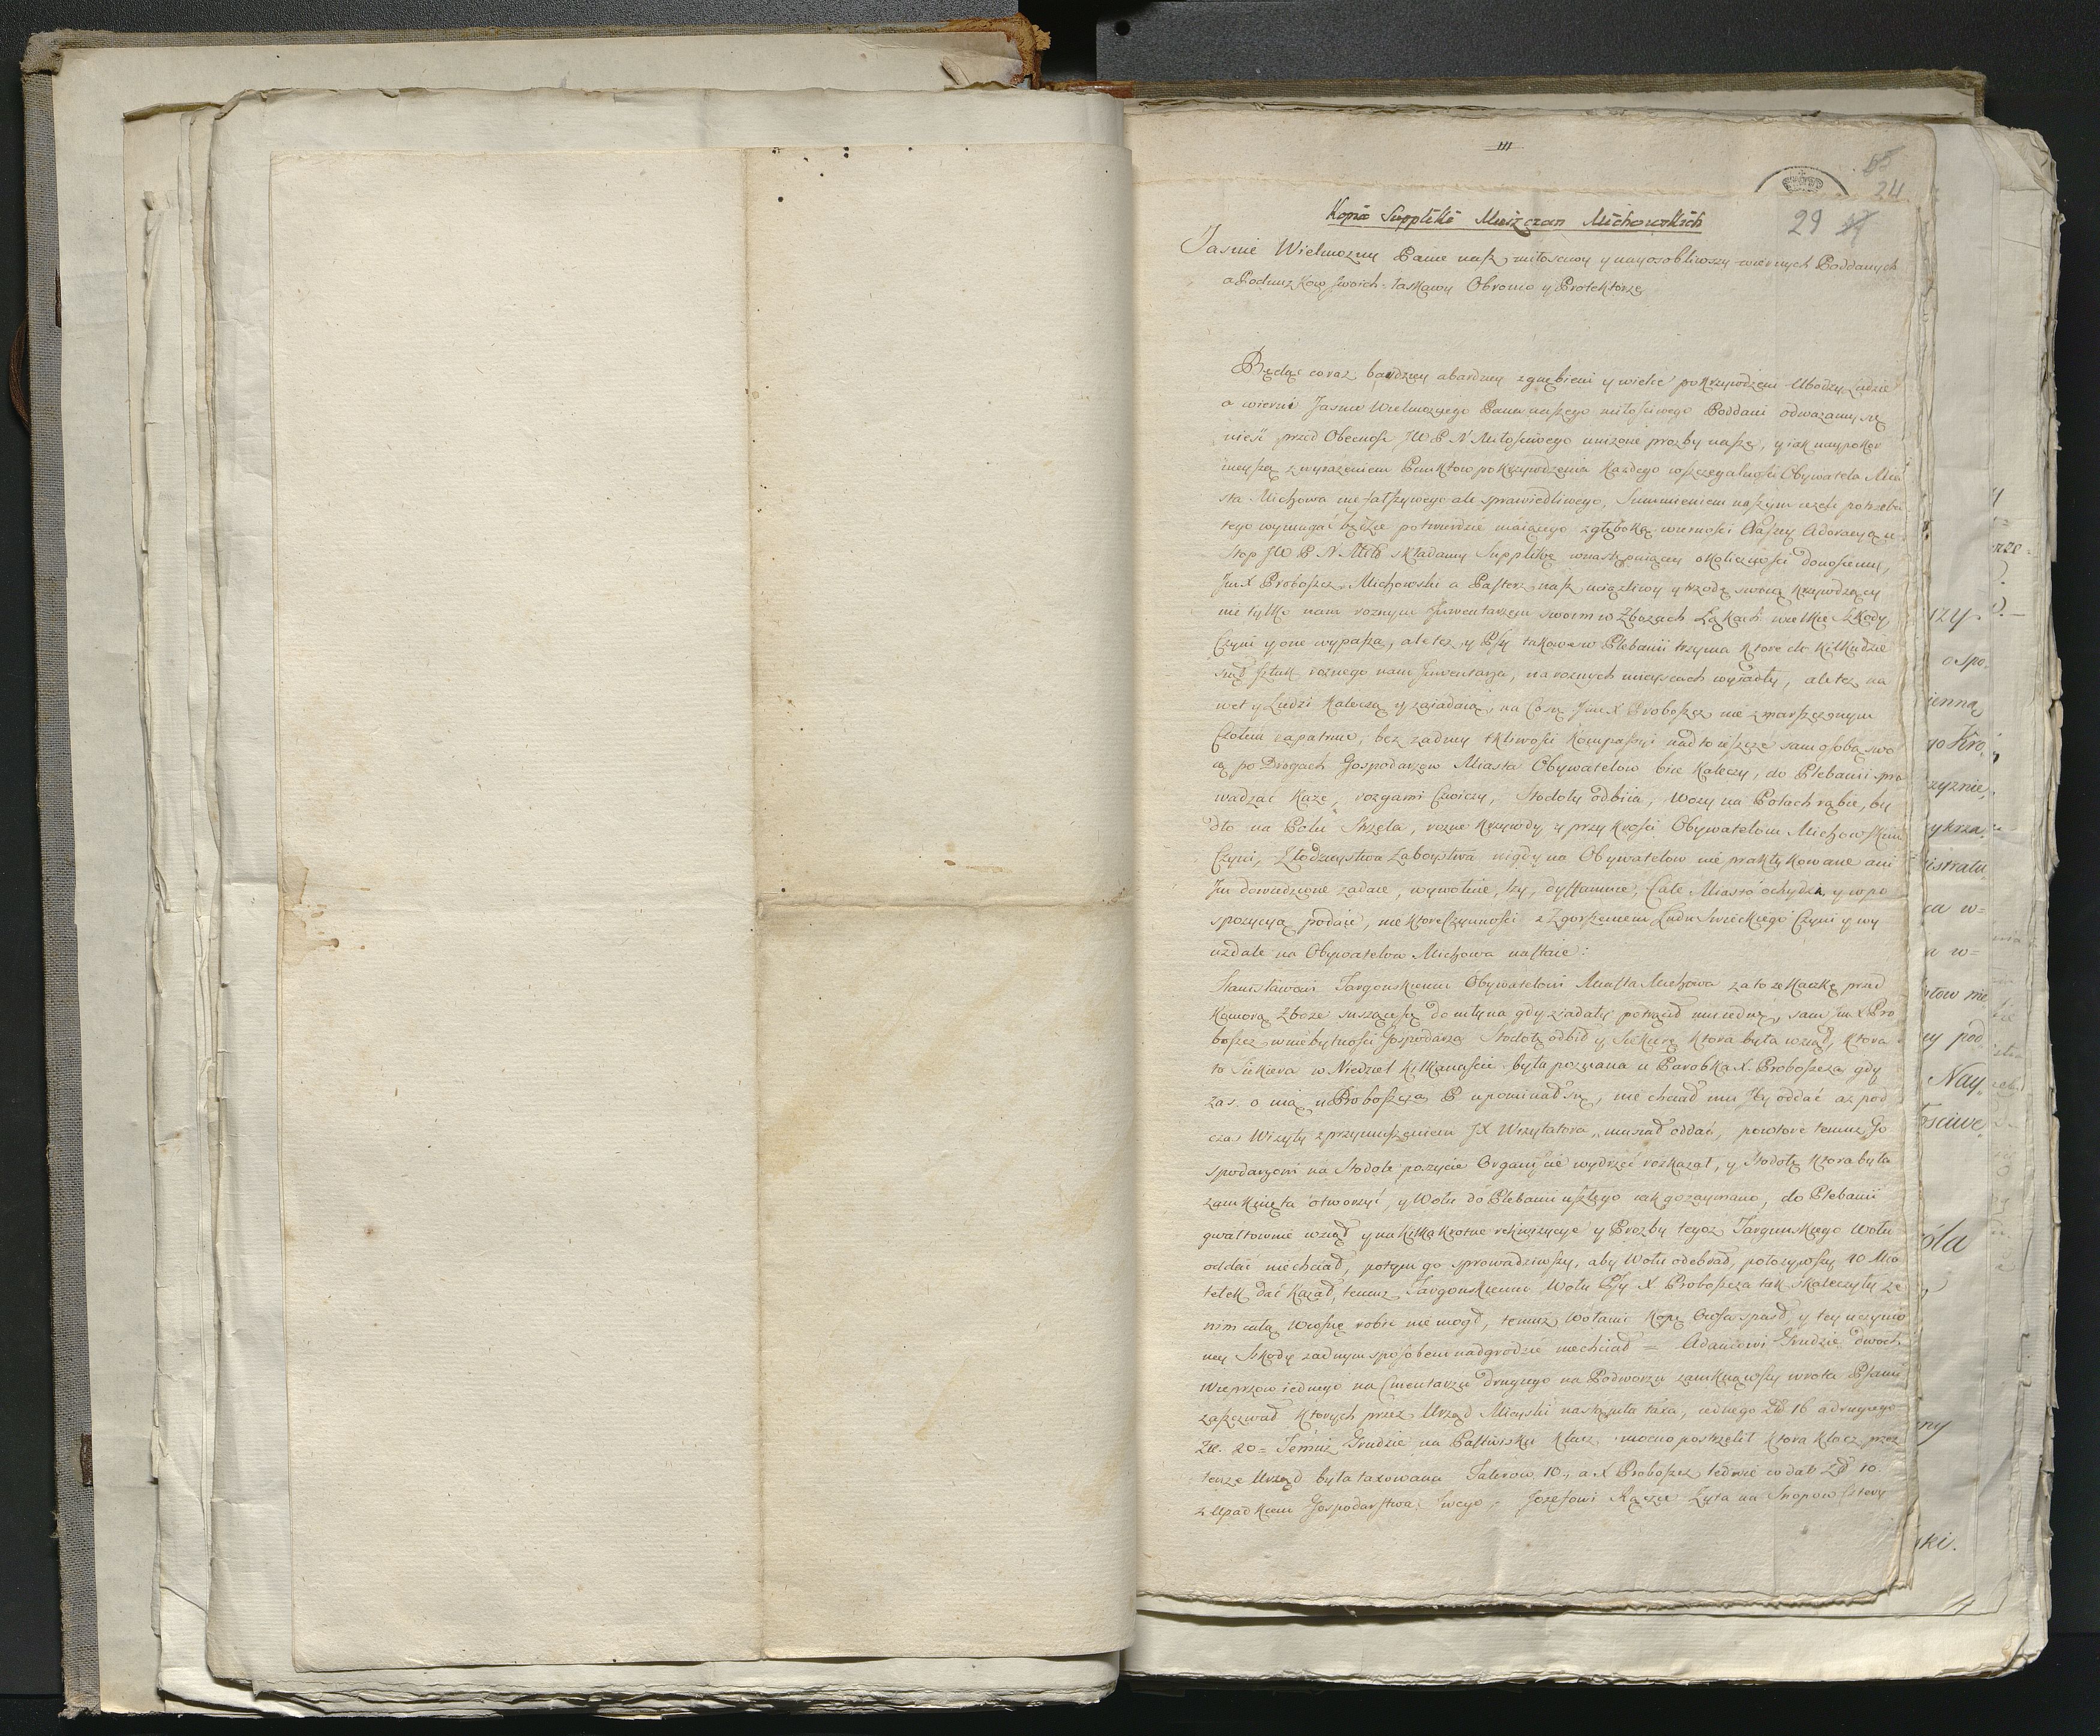 III
24
29
Kopia Suppliki Mieszczan Michowskich
Jasnie Wielmozny Panie nasz miłosciwy y nayosobliwszy wiernych Poddanych
a Podnuzkow swoich łaskawy Obronco y Protektorze
Będąc coraz bardziey a bardziey zgnębieni y wielce pokrzywdzeni Ubodzy Ludzie
a wierni Jasnie Wielmoznego Pana naszego miłosciwego Poddani odwazamy się
niesć przed Obecnosc JWPN Miłosciwego unizone prozby nasze, y iak naypokor
nieysze z wyrazeniem Punktow pokrzywdzenia kazdego w szczegulnosci Obywatela Mia
sta Michowa nie fałszywego ale sprawiedliwego, Summieniem naszym iezeli potrzeba
tego wymagać będzie potwierdzić maiącego z głęboką wiernosci Naszey Adoracyą u
Stop JWPN Mił składamy Supplikę w następuiącey okolicznosci donosiemy,
Jm X Proboszcz Michowski a Pasterz nasz uciązliwy y trzodę swoią krzywdzący
nie tylko nam roznym Inwentarzem swoim w Zbozach Łąkach wielkie Szkody
Czyni y one wypasa, ale tez y Psy takowe w Plebanii trzyma ktore do kilkudzie
siąt sztuk roznego nam Inwentarza, na roznych mieyscach wyiadły, ale tez na
wet y Ludzi Kaleczą y zaiadaią, na Co się Jm X Proboszcz nie zmarszczonym
Czołem zapatruie, bez zadney tkliwosci kompassyi nadto ieszcze sam osobą swo
ią po Drogach Gospodarzow Miasta Obywatelow bie kaleczy, do Plebanii pro
wadzać kaze, rozgami Cwiczy, Stodoły odbiia, Wozy na Polach rąbie, by
dło na Polu Strzela, rozne krzywdy y przykrosci Obywatelom Michowskim
Czyni, Złodzieystwa Zaboystwa nigdy na Obywatelow nie praktykowane ani
Im dowiedzione zadaie, wywołuie, łzy, dyffamuie, Całe Miasto ochydza y w po
spozycyą podaie, niektore Czynnosci z Zgorszeniem Ludu Swieckiego Czyni y wy
uzdale na Obywatelow Michowa nastaie:
Stanisławowi Targonskiemu Obywatelowi Miasta Michowa za to ze Kaczkę przed
Komorą Zboze suszące się do młyna gdy ziadały potrącił mu iedną, sam Jm X Pro
boszcz w niebytnosci Gospodarza Stodołę odbił y Siekierę ktora była wziął, ktora
to Siekiera w Niedziel kilkanascie była poznana u Parobka X. Proboszcza, gdy
zas o nią u Proboszcza P upominał się, nie chciał mu Jey oddać az pod
czas Wizyty z przymuszeniem JX Wizytatora, musiał oddać, powtore temuz Go
spodarzowi na Stodole poszycie Organiscie wydrzeć rozkazał, y Stodołę ktora była
zamknięta otworzyć, y Wołu do Plebanii uszłego iak go zaymano, do Plebanii
gwałtownie wziął y na kilkakrotne rekwizycye y Prozby tegoz Targonskiego Wołu
oddać niechciał, potym go sprowadziwszy, aby Wołu odebrał, połozywszy 40 Mio
tełek dać kazał, temuz Targonskiemu Wołu Psy X Proboszcza tak skaleczyły ze
nim całą Wiosnę robic nie mogł, temuz Wołami Kopę Owsa spasł, y tey uczynio
ney Szkody zadnym sposobem nadgrodzić niechciał = Adamowi Grudzie dwoch
Wieprzow iednego na Cmentarzu drugiego na Podworzu zamknąwszy wrota Psami
zaszczwał ktorych przez Urząd Mieyski nastąpiła taxa, iednego Zł 16 a drugiego
Zł. 20 = Temuz Grudzie na Pastwisku klacz mocno postrzelił ktora klacz przez
tenze Urząd była taxowana Talerow 10., a X Proboszcz ledwie co dał Zł 10
z Upadkiem Gospodarstwa swego = Jozefowi Rączce Zyta na Snopow sztery